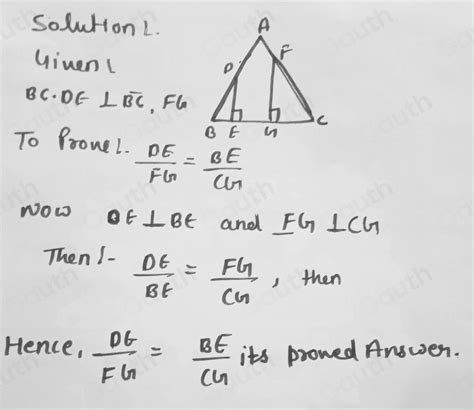 Solution:.
Given:
BC·DE ⊥ BC, FG
To Prove:. DE/FG = BE/CG
Now DE ⊥ BE and FG ⊥ CG
Then:- DE/BE = FG/CG, then
Hence, DE/FG = BE/CG its proved Answer.
A
D
F
B E G C
Gauth